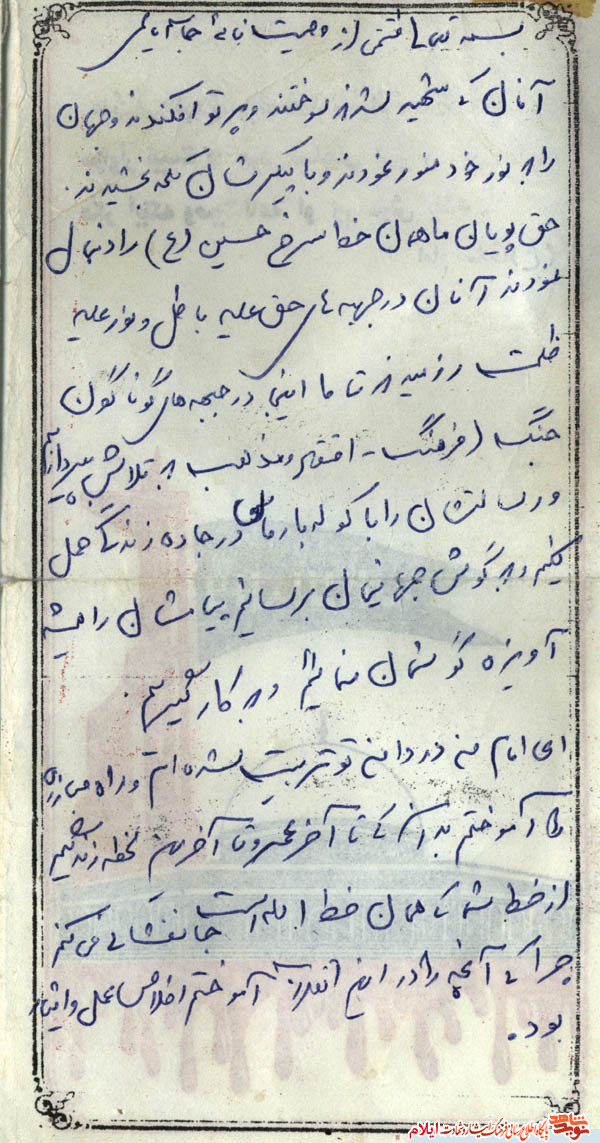 بسمه تعالی قسمتی از وصیتنامه
آنان که شهید شدند سوختند و پرتو افکندند و جهان
را به نور خود منور نمودند و با پیکرشان بخشیدند.
حق پویان ما همان خط سرخ حسین (ع) را دنبال
نمودند آنان در جبهه های حق علیه باطل و نور علیه
ظلمت رزمیدند تا ما اینجا در جبهه های گوناگون
جنگ (فرهنگ - اقتصاد و مذهب به تلاش بپردازیم
و رسالتشان را با کوله بارمان در جاده زندگی حمل
کنیم و به گوش جهانیان برسانیم پیامشان را همیشه
آویزه گوشمان نمائیم و به کار گیریم.
ای امام من در دامن تو تربیت شده ام و راه مبارزه
را آموختم بدان که تا آخر عمر و تا آخرین لحظه زندگیم
از خط شما که همان خط الله است جانفشانی می کنم
چرا که آنچه را در این انقلاب آموختم اخلاص عمل و ایثار
بود.
نوید شاهد
پایگاه اطلاع رسانی فرهنگ ایثار و شهادت ایلام